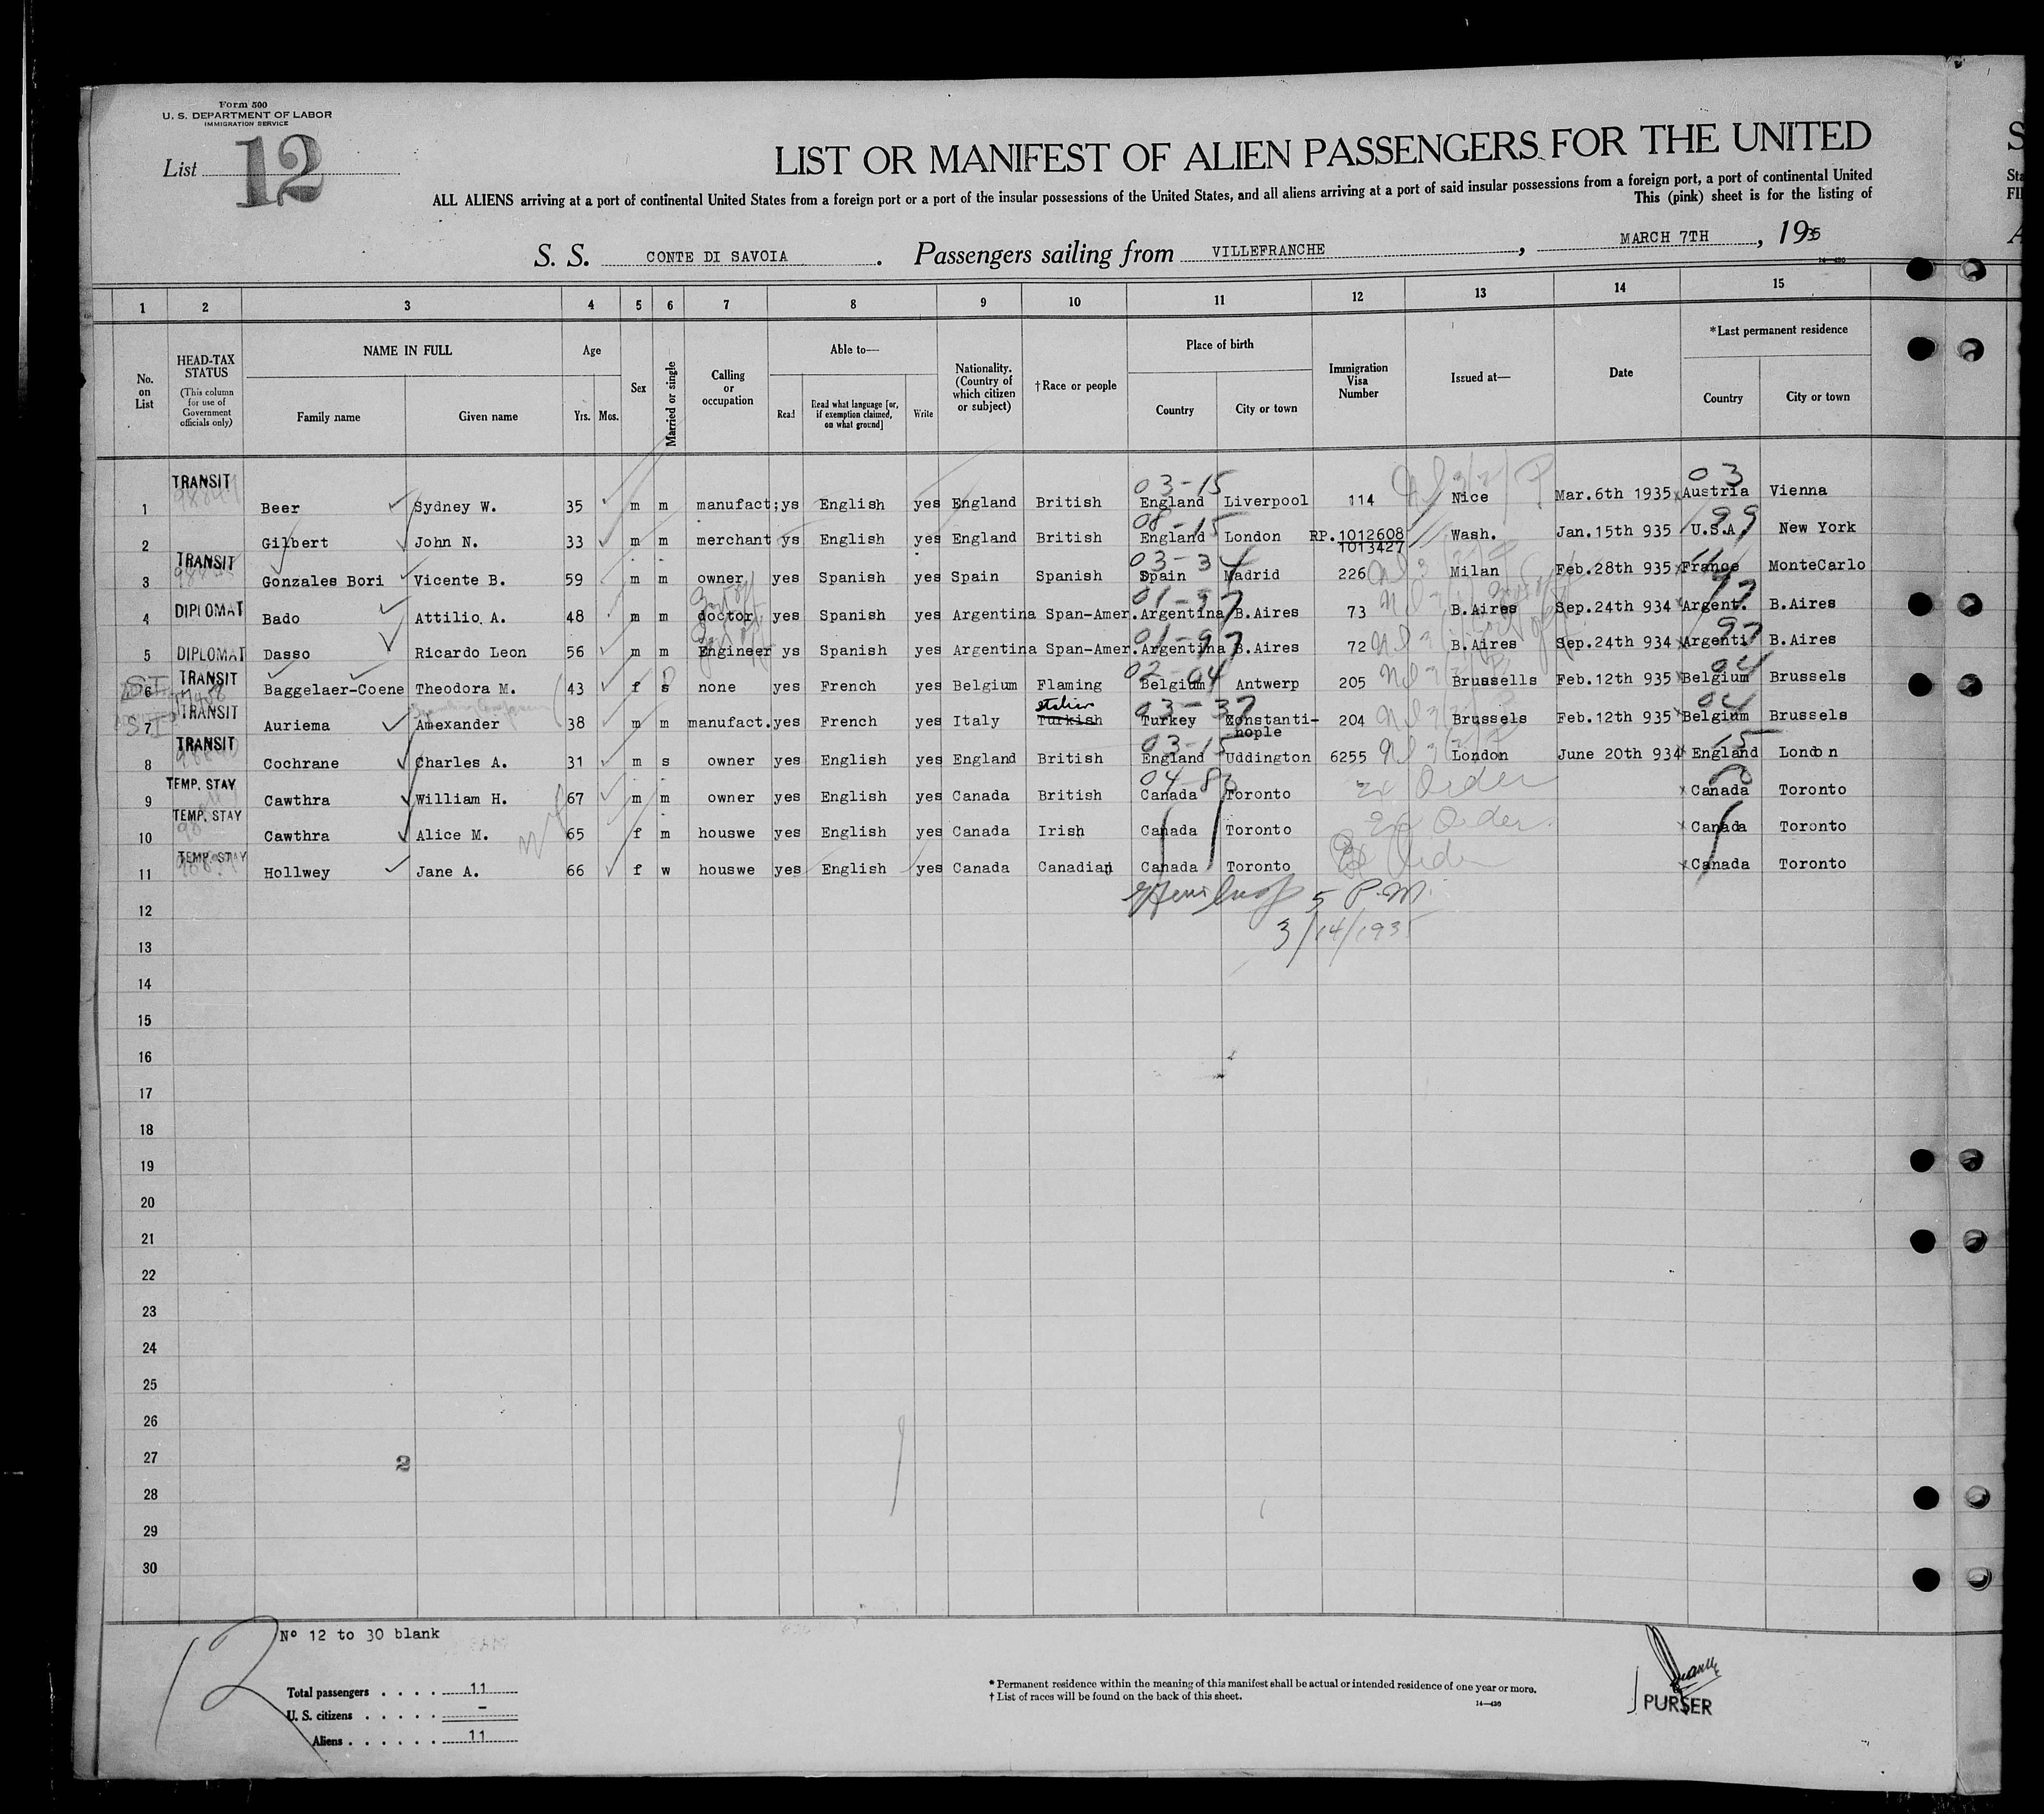 Form 500
U. S. DEPARTMENT OF LABOR
IMMIGRATION SERVICE
List 12
LIST OR MANIFEST OF ALIEN PASSENGERS FOR THE UNITED
ALL ALIENS arriving at a port of continental United States from a foreign port or a port of the insular possessions of the United States, and all aliens arriving at a port of said insular possessions from a foreign port, a port of continental United
This (pink) sheet is for the listing of
S. S. CONTE DI SAVOIA. Passengers sailing from VILLEFRANCHE, MARCH 7TH, 1935
1 2 3 4 5 6 7 8 9 10 11 12 13 14 15
No. on List
HEAD-TAX STATUS (This column for use of Government officials only)
NAME IN FULL Family name Given name
Age Yrs. Mos.
Sex
Married or single
Calling or occupation
Able to— Read Read what language [or, if exemption claimed, on what ground] Write
Nationality. (Country of which citizen or subject)
†Race or people
Place of birth Country City or town
Immigration Visa Number
Issued at—
Date
*Last permanent residence Country City or town
03-15 03
1 TRANSIT Beer Sydney W. 35 m m manufact; ys English yes England British England Liverpool 114 Nice Mar.6th 1935 Austria Vienna
08-15 99
2 Gilbert John N. 33 m m merchant ys English yes England British England London RP.1012608 Wash. Jan.15th 935 U.S.A. New York
1013427
03-34
3 TRANSIT Gonzales Bori Vicente B. 59 m m owner yes Spanish yes Spain Spanish Spain Madrid 226 Milan Feb.28th 935 France MonteCarlo
01-97 97
4 DIPLOMAT Bado Attilio A. 48 m m doctor yes Spanish yes Argentina Span-Amer. Argentina B.Aires 73 B.Aires Sep.24th 934 Argent. B.Aires
01-97 97
5 DIPLOMAT Dasso Ricardo Leon 56 m m Engineer ys Spanish yes Argentina Span-Amer. Argentina B.Aires 72 B.Aires Sep.24th 934 Argenti B.Aires
02-04 04
6 TRANSIT Baggelaer-Coene Theodora M. 43 f s none yes French yes Belgium Flaming Belgium Antwerp 205 Brussells Feb.12th 935 Belgium Brussels
italian 03-37 04
7 TRANSIT Auriema Amexander 38 m m manufact. yes French yes Italy Turkish Turkey Konstanti-nople 204 Brussels Feb.12th 935 Belgium Brussels
03-15 15
8 TRANSIT Cochrane Charles A. 31 m s owner yes English yes England British England Uddington 6255 London June 20th 934 England London
04-80
9 TEMP. STAY Cawthra William H. 67 m m owner yes English yes Canada British Canada Toronto Ex Order Canada Toronto
10 TEMP. STAY Cawthra Alice M. 65 f m houswe yes English yes Canada Irish Canada Toronto Ex Order Canada Toronto
11 TEMP. STAY Hollwey Jane A. 66 f w houswe yes English yes Canada Canadian Canada Toronto Ex Order Canada Toronto
5 P.M.
12
3/14/1935
13
14
15
16
17
18
19
20
21
22
23
24
25
26
27 2
28
29
30
12
Nº 12 to 30 blank
Total passengers . . . . 11
U. S. citizens . . . . . –
Aliens . . . . . . 11
* Permanent residence within the meaning of this manifest shall be actual or intended residence of one year or more.
† List of races will be found on the back of this sheet.
14—430
PURSER